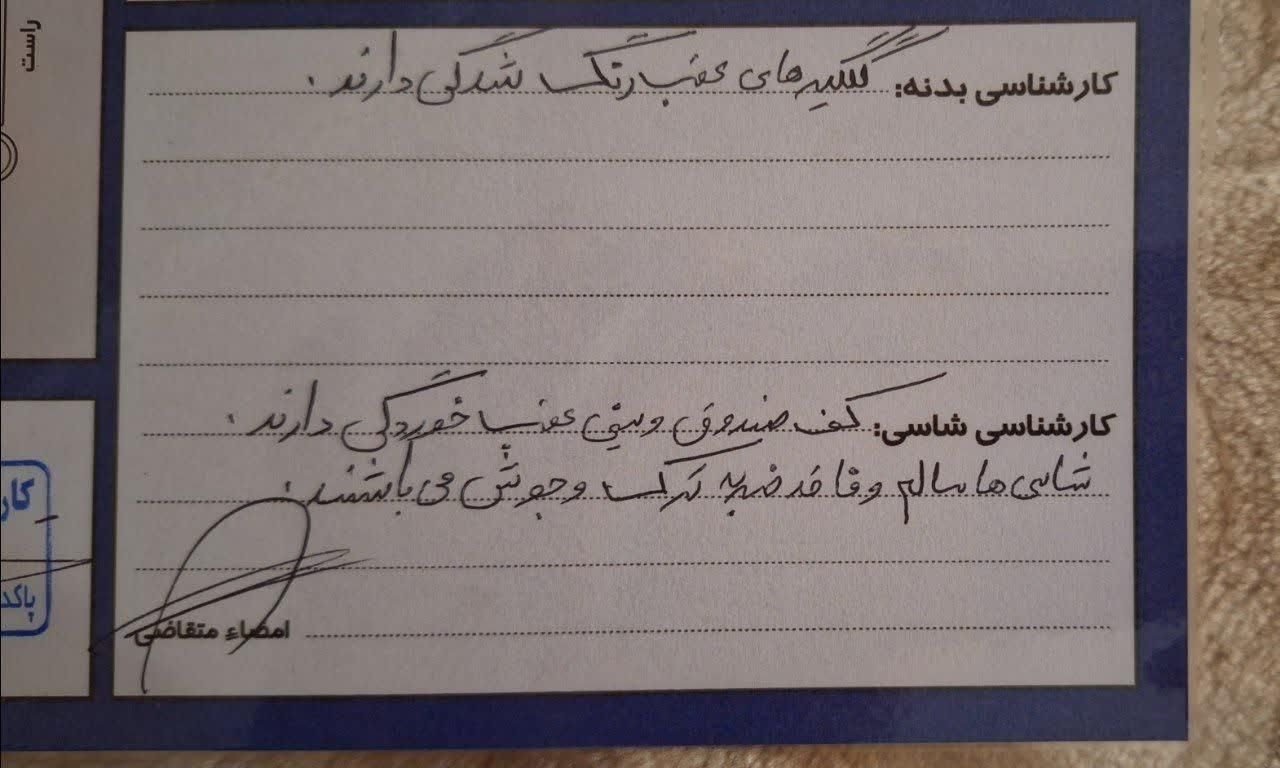 راست
کارشناسی بدنه: گلگیرهای عقب رنگ شدگی دارند.
کارشناسی شاسی: کف صندوق و سینی عقب خوردگی دارند.
شاسی ها سالم و فاقد ضربه ترک و جوش می باشند.
امضاء متقاضی